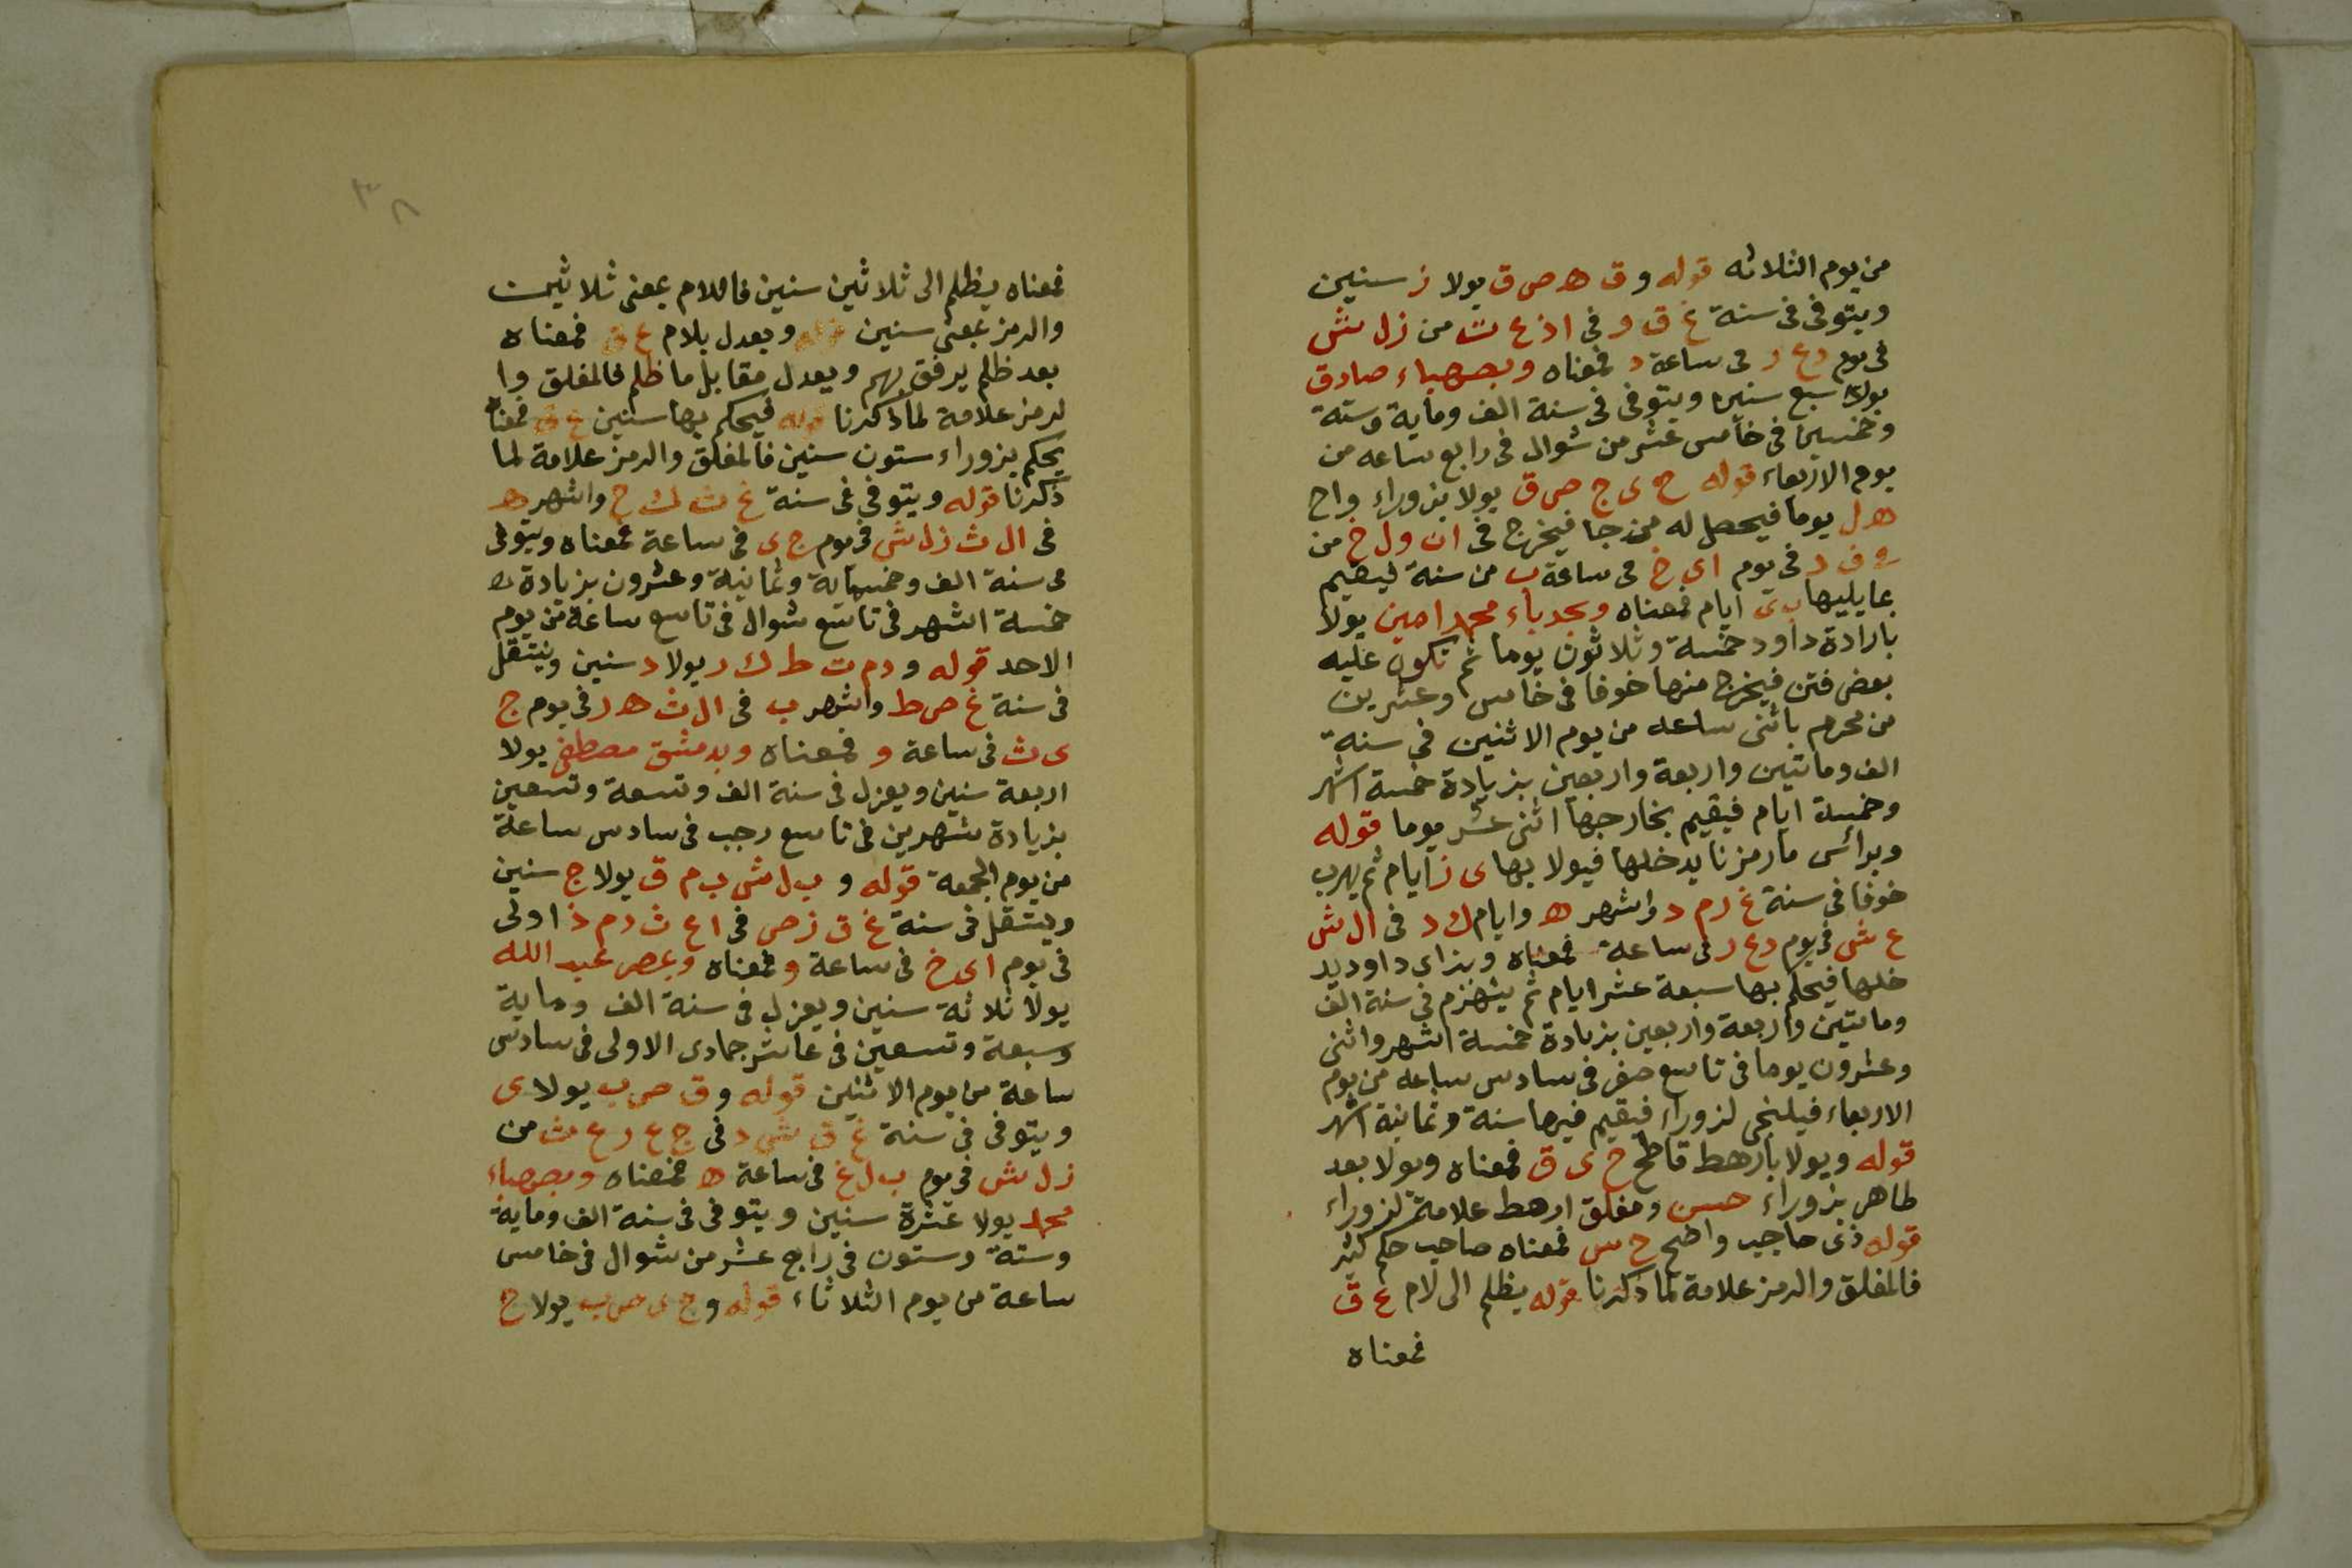 من يوم الثلاثه قوله و ق ه ص ق يولا ز سنين
ويتوفى فى سنة غ ق و فى ا ذ ع ث من ز ل ش
فى يوم د ع ر فى ساعة د فمعناه وبصهباء صادق
يولا سبع سنين ويتوفى فى سنة الف وماية وستة
وخمسين فى خامس عشر من شوال فى رابع ساعه من
يوم الاربعاء قوله ح ى ج ص ق يولا بزوراء واح
ه ل يوما فيحصل له من جا فيخرج فى ا ن و ل خ من
ف د فى يوم ا ى خ فى ساعة ب من سنة فيقيم
بما يليها ب ى ايام فمعناه وبحدباء محمد امين يولا
بارادة داود خمسة وثلاثون يوما ثم تكون عليه
بعض فتن فيخرج منها خوفا فى خامس وعشرين
من محرم باثنى ساعه من يوم الاثنين فى سنة
الف وماتين واربعة واربعين بزيادة خمسة اشهر
وخمسة ايام فيقيم بخارجها اثنى عشر يوما قوله
وبرائس مارمزنا يدخلها فيولا بها ى ز ايام ثم يهرب
خوفا فى سنة غ ر م د واشهر ه وايام ك د فى ال ش
ع ش فى يوم د ع ر فى ساعة فمعناه وبزاى داود يد
خلها فيحكم بها سبعة عشر ايام ثم ينهزم فى سنة الف
ومائتين واربعة واربعين بزيادة خمسة اشهر واثنى
وعشرون يوما فى تاسع صفر فى سادس ساعه من يوم
الاربعاء فيلتجى لزوراء فيقيم فيها سنة وثمانية اشهر
قوله ويولا بارهط قاطح ح ى ق فمعناه ويولا بعد
طاهر بزوراء حسن ومغلق ارهط علامة لزوراء
قوله ذى حاجب واضح ح س فمعناه صاحب حكم كثير
فالمغلق والرمز علامة لما ذكرنا قوله يظلم الى لام ع ق
فمعناه
٣٨
فمعناه يظلم الى ثلاثين سنين فاللام بمعنى ثلاثين
والرمز بمعنى سنين قوله ويعدل بلام ع ق فمعناه
بعد ظلم يرفق بهم ويعدل مقابل ما ظلم فالمغلق وا
لرمز علامة لما ذكرنا قوله فيحكم بها سنين ع ق فمعنا
يحكم بزوراء ستون سنين فالمغلق والرمز علامة لما
ذكرنا قوله ويتوفى فى سنة غ ث ك ح واشهر ه
فى ال ث ز ل ش فى يوم ج ى فى ساعة فمعناه ويتوفى
فى سنة الف وخمسماية وثمانية وعشرون بزيادة
خمسة اشهر فى تاسع شوال فى تاسع ساعة من يوم
الاحد قوله و د م ت ط ك ر يولا د سنين وينتقل
فى سنة غ ص ط واشهر ب فى ال ث ه ر فى يوم ج
ى ث فى ساعة و فمعناه وبدمشق مصطفى يولا
اربعة سنين ويعزل فى سنة الف وتسعة وتسعين
بزيادة شهرين فى تاسع رجب فى سادس ساعة
من يوم الجمعة قوله و ب ل ش ب م ق يولا ج سنين
وينتقل فى سنة غ ق ز ص فى ا ع ث د م ذ اولى
فى يوم ا ى خ فى ساعة و فمعناه وبمصر عبد الله
يولا ثلاثة سنين ويعزل فى سنة الف وماية
وسبعة وتسعين فى عاشر جمادى الاولى فى سادس
ساعة من يوم الاثنين قوله و ق ص ب يولا ى
ويتوفى فى سنة غ ق ش د فى ج ع ر ع ث من
ز ل ش فى يوم ب ل غ فى ساعة ه فمعناه وبصهباء
محمد يولا عشرة سنين ويتوفى فى سنة الف وماية
وستة وستون فى رابع عشر من شوال فى خامس
ساعة من يوم الثلاثاء قوله و ج ى ص ب يولا ح